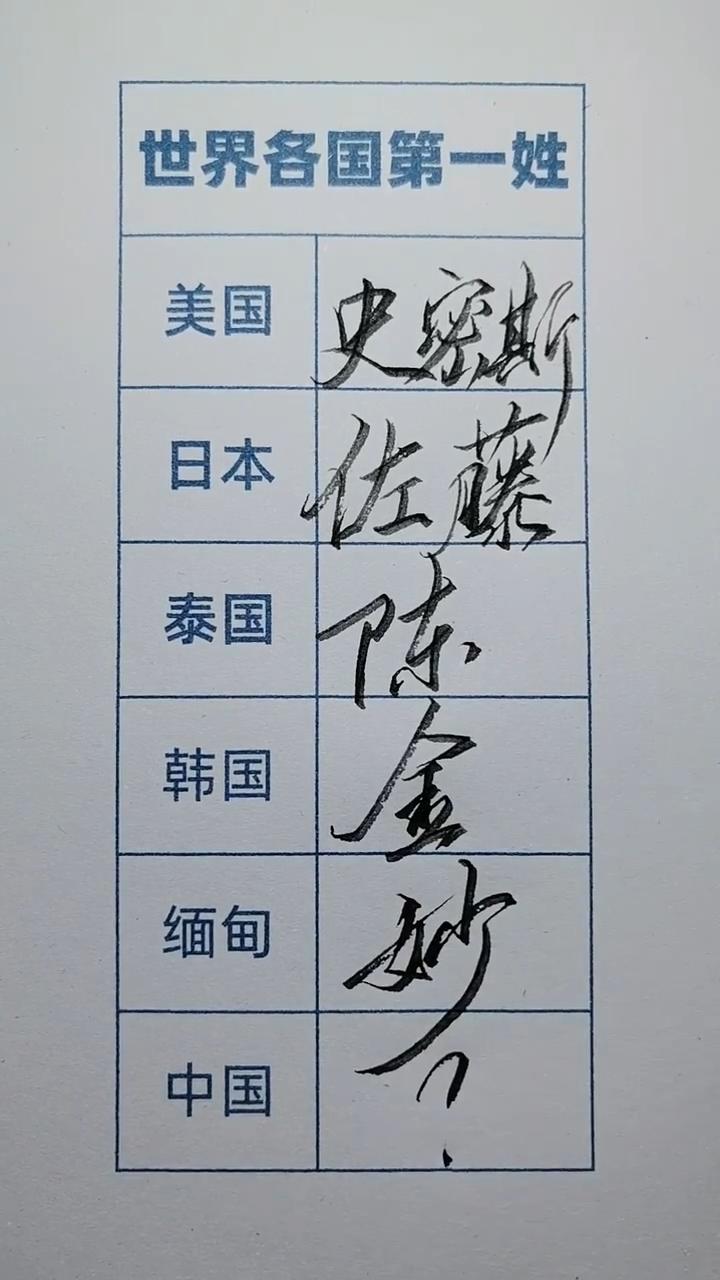 世界各国第一姓
美国 史密斯
日本 佐藤
泰国 陈
韩国 金
缅甸 妙
中国 ?